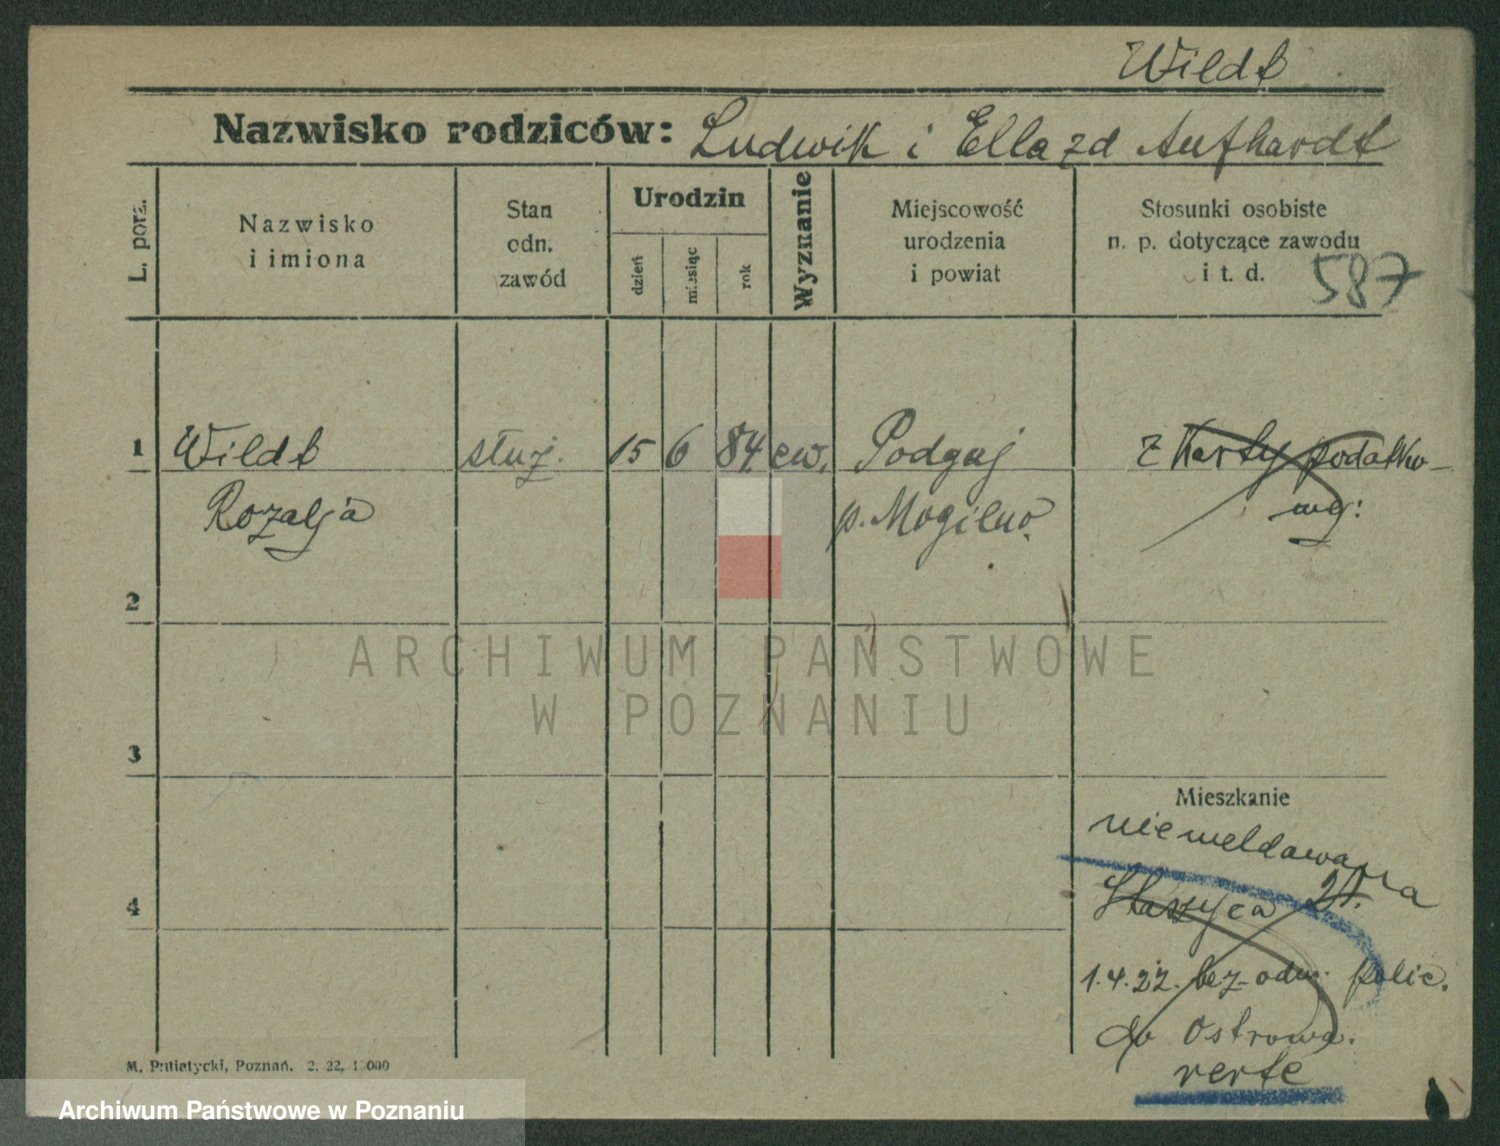 Wildt
Nazwisko rodziców: Ludwik i Ella zd Aufhardt
L. porz.
Nazwisko
i imiona
Stan
odn.
zawód
Urodzin
dzień
miesiąc
rok
Wyznanie
Miejscowość
urodzenia
i powiat
Stosunki osobiste
n. p. dotyczące zawodu
i t. d.
587
1 Wildt służ. 15 6 84 ew. Podgaj z karty podatko-
Rozalja p. Mogilno. wej:
2
3
Mieszkanie
niemeldowana
4
Staszyca 21.
1.4.22. bez odm. polic.
do Ostrowa.
verte
M. Putiatycki, Poznań. 2. 22. 1 000
ARCHIWUM PAŃSTWOWE
W POZNANIU
Archiwum Państwowe w Poznaniu